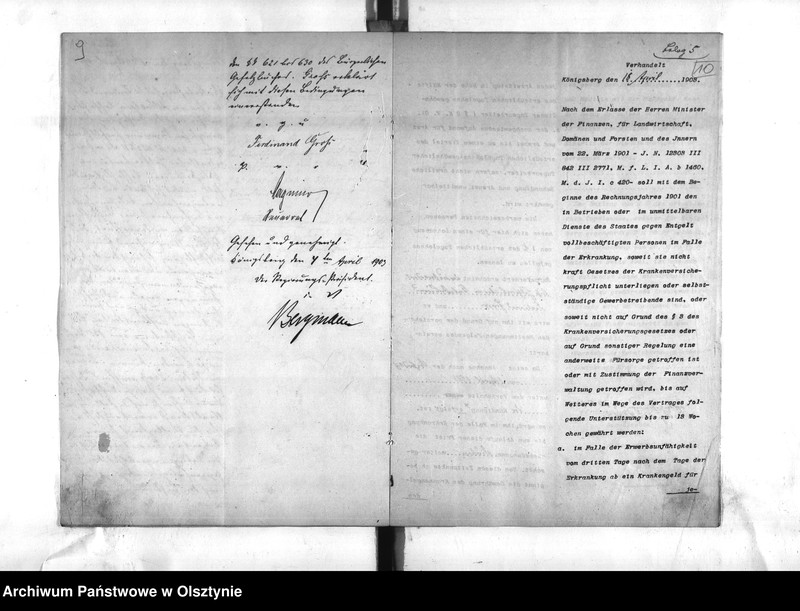 9
den §§ 620 bis 630 des Bürgerlichen
Gesetzbuches. Groß erklärt
sich mit diesen Bedingungen
einverstanden.
v. g. u.
Ferdinand Groß
Baurat
Gesehen und genehmigt.
Königsberg den 4ten April 1903
Der Regierungs-Präsident.
Bergmann
Belag 5
10
Verhandelt
Königsberg den 18. April 1903.
Nach dem Erlasse der Herren Minister
der Finanzen, für Landwirtschaft,
Domänen und Forsten und des Innern
vom 22. März 1901 - J. N. 12808 III
842 III 2771, M. f. L. I. A. b 1460,
M. d. J. I. c 420- soll mit dem Be-
ginne des Rechnungsjahres 1901 den
in Betrieben oder im unmittelbaren
Dienste des Staates gegen Entgelt
vollbeschäftigten Personen im Falle
der Erkrankung, soweit sie nicht
kraft Gesetzes der Krankenversiche-
rungspflicht unterliegen oder selbst-
ständige Gewerbetreibende sind, oder
soweit nicht auf Grund des § 3 des
Krankenversicherungsgesetzes oder
auf Grund sonstiger Regelung eine
anderweite Fürsorge getroffen ist
oder mit Zustimmung der Finanzver-
waltung getroffen wird, bis auf
Weiteres im Wege des Vertrages fol-
gende Unterstützung bis zu 13 Wo-
chen gewährt werden:
a. im Falle der Erwerbsunfähigkeit
vom dritten Tage nach dem Tage der
Erkrankung ab ein Krankengeld für
je-
Archiwum Państwowe w Olsztynie